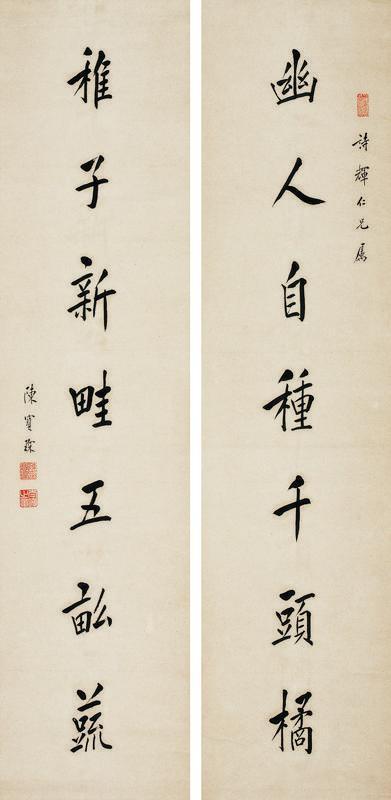 詩輝仁兄屬
幽人自種千頭橘
稚子新畦五畝蔬
陳寶琛